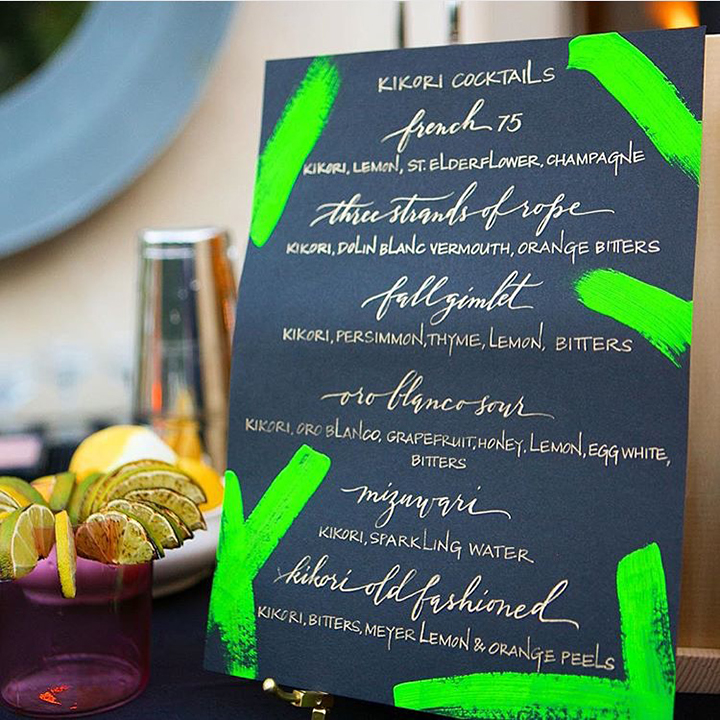 KIKORI COCKTAILS
french 75
KIKORI, LEMON, ST. ELDERFLOWER, CHAMPAGNE
three strands of rope
KIKORI, DOLIN BLANC VERMOUTH, ORANGE BITTERS
fall gimlet
KIKORI, PERSIMMON, THYME, LEMON, BITTERS
oro blanco sour
KIKORI, ORO BLANCO, GRAPEFRUIT, HONEY, LEMON, EGG WHITE,
BITTERS
mizuwari
KIKORI, SPARKLING WATER
kikori old fashioned
KIKORI, BITTERS, MEYER LEMON & ORANGE PEELS